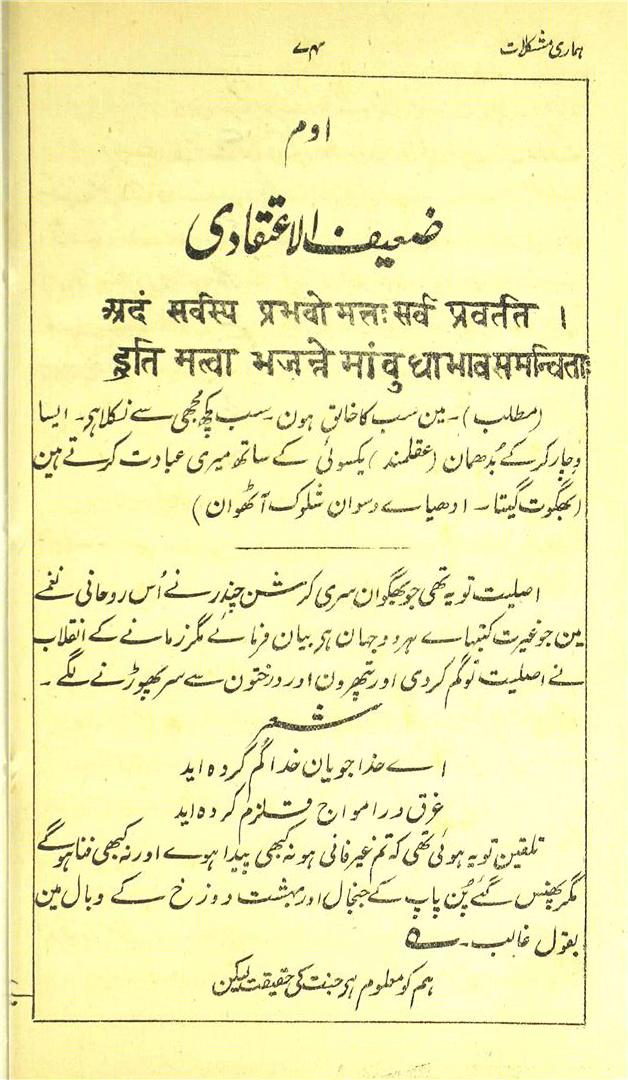 ہماری مشکلات ۷۴
اوم
ضعیف الاعتقادی
अदं सर्वस्य प्रभवो मत्तः सर्व प्रवर्तत ।
इति मत्वा भजन्ते मां वुधा भाव समन्विताः
(مطلب)۔ مین سب کا خالق ہون۔ سب کچھ مجھی سے نکلا ہی۔ ایسا
وچار کرکے بُدھمان (عقلمند) یکسوئی کے ساتھ میری عبادت کرتے ہین
(بھگوت گیتا۔ ادھیاے دسوان شلوک آٹھوان)
اصلیت تو یہ تھی جو بھگوان سری کرشن چندر نے اُس روحانی نغمے
مین جو غیرت نغمہاے ہر دو جہان ہی بیان فرمائے مگر زمانے کے انقلاب
نے اصلیت تو گم کردی اور پتھرون اور درختون سے سر پھوڑنے لگے۔
شعر
اے خدا جویان خدا گم کردہ اید
غرق در امواج قلزم کردہ اید
تلقین تو یہ ہوئی تھی کہ تم غیر فانی ہو نہ کبھی پیدا ہوے اور نہ کبھی فنا ہوگے
مگر پھنس گئے پُن پاپ کے جنجال اور بہشت دوزخ کے وبال مین
بقول غالب۔ ؎
ہم کو معلوم ہی جنت کی حقیقت لیکن